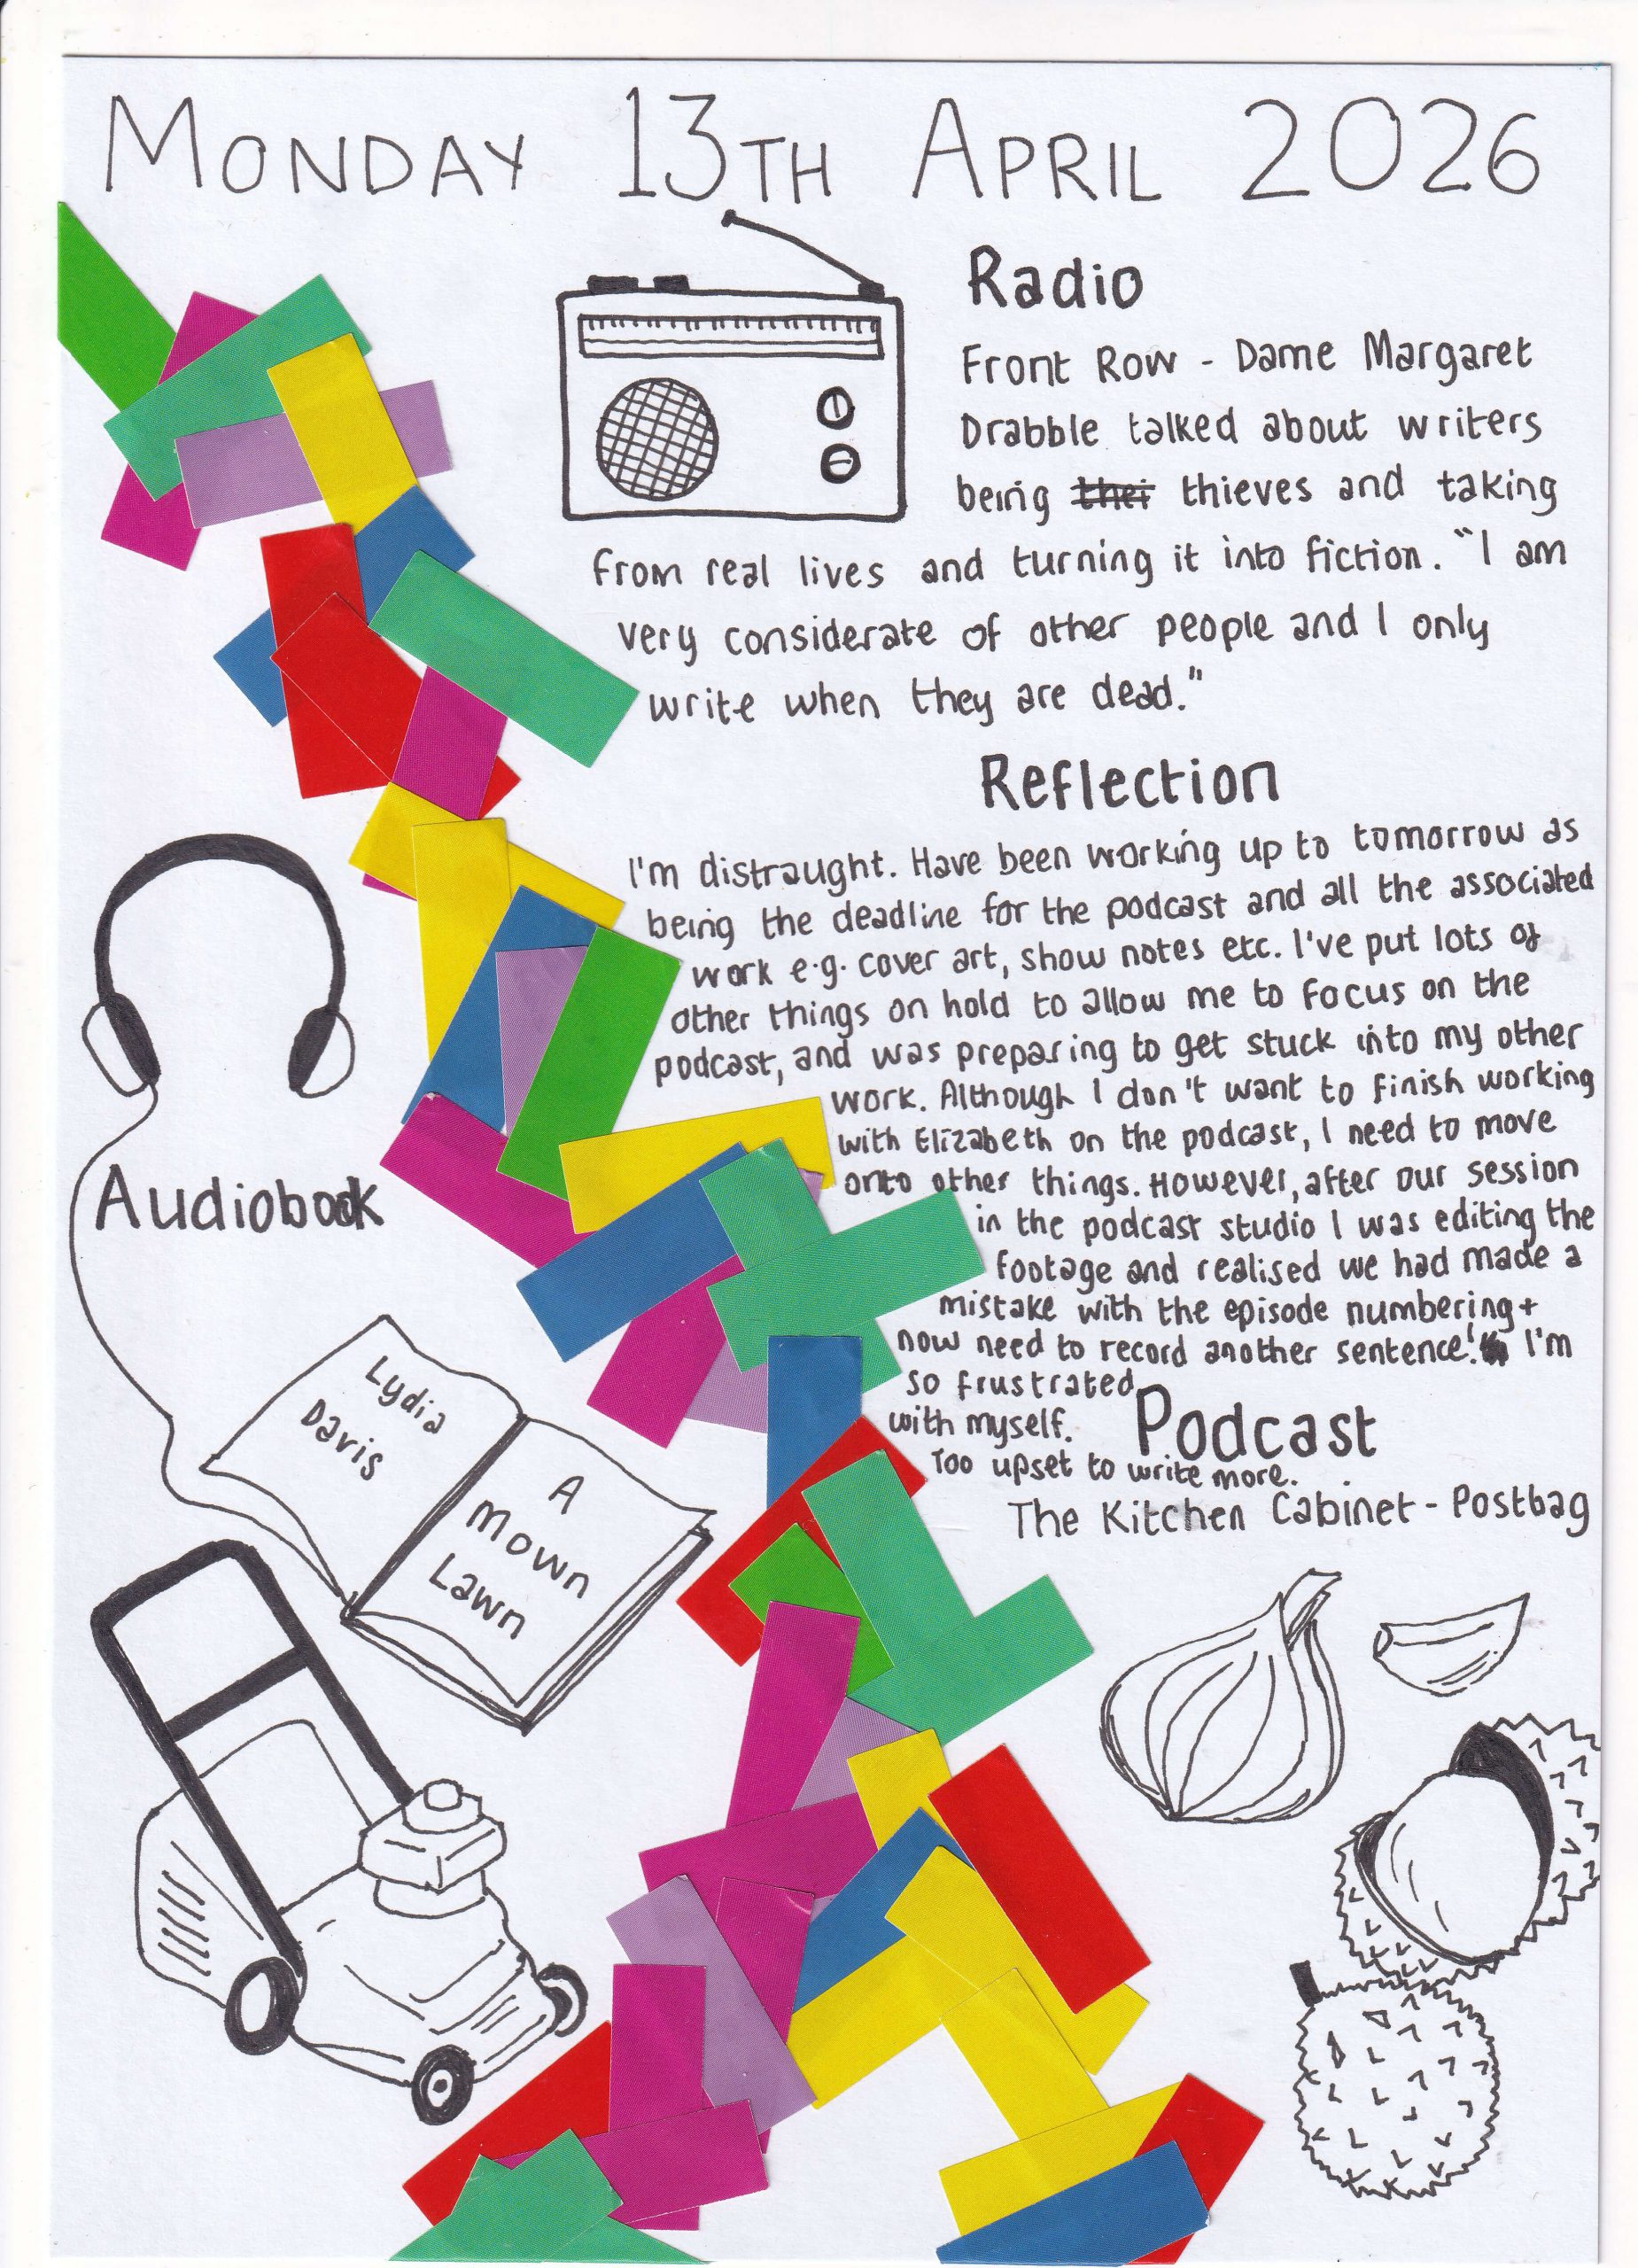 MONDAY 13TH APRIL 2026
Radio
Front Row - Dame Margaret
Drabble talked about writers
being thei thieves and taking
from real lives and turning it into fiction. "I am
very considerate of other people and I only
write when they are dead."
Reflection
I'm distraught. Have been working up to tomorrow as
being the deadline for the podcast and all the associated
work e.g. cover art, show notes etc. I've put lots of
other things on hold to allow me to focus on the
podcast, and was preparing to get stuck into my other
work. Although I don't want to finish working
with Elizabeth on the podcast, I need to move
onto other things. However, after our session
in the podcast studio I was editing the
footage and realised we had made a
mistake with the episode numbering +
now need to record another sentence! I'm
so frustrated
with myself.
Too upset to write more.
Podcast
The Kitchen Cabinet - Postbag
Audiobook
Lydia
Davis
A
Mown
Lawn